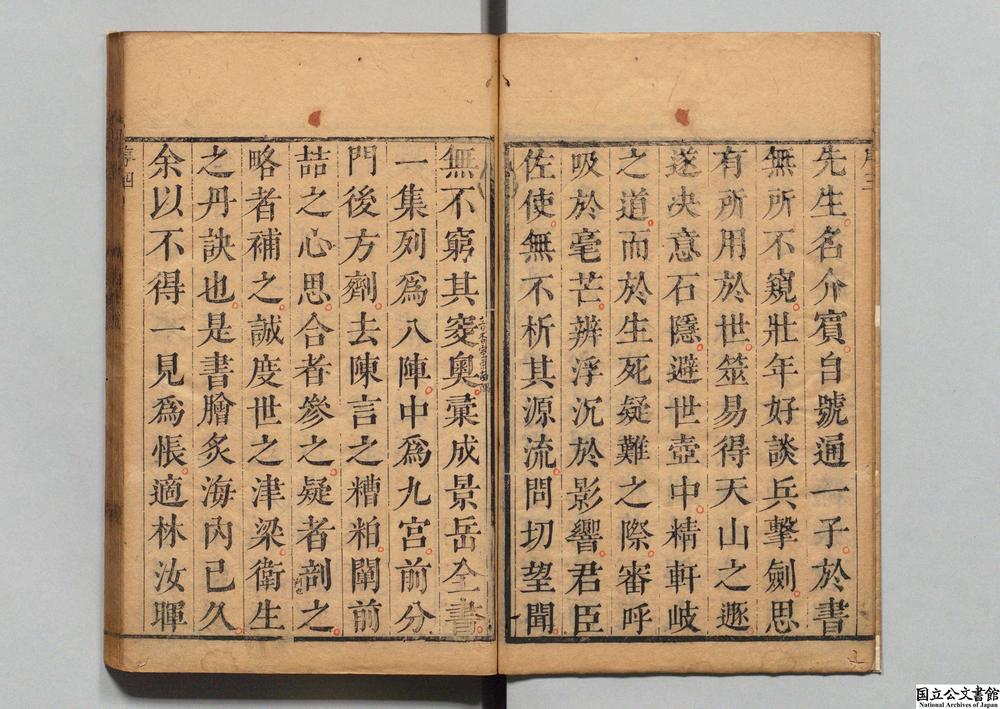 先生名介賓自號通一子於書
無所不窺壯年好談兵擊劍思
有所用於世筮易得天山之遯
遂决意石隱避世壺中精軒岐
之道而於生死疑難之際審呼
吸於毫芒辨浮沉於影響君臣
佐使無不析其源流問切望聞
無不窮其窔奧彙成景岳全書
一集列爲八陣中爲九宫前分
門後方劑去陳言之糟粕闡前
喆之心思合者參之疑者剖之
略者補之誠度世之津梁衛生
之丹訣也是書膾炙海内已久
余以不得一見爲悵適林汝暉
序四
国立公文書館
National Archives of Japan